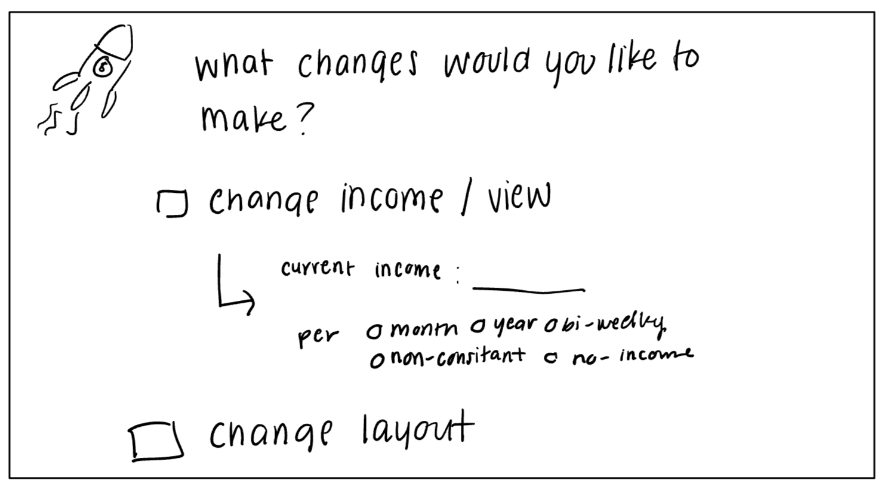 what changes would you like to
make?
change income / view
current income : ______
per o month o year o bi-weekly
o non-consitant o no-income
change layout